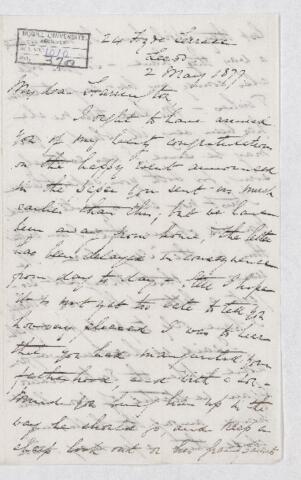 McGILL UNIVERSITY
ARCHIVES
ACC. NO. 1010
REF. 370
24 Hyde Terrace
Leeds
2 May 1877
My dear Harrington
I ought to have assured
you of my hearty congratulations
on the happy event announced
in the letter you sent us much
earlier than this, but we have
been away from home, & the letter
has been delayed in consequence
from day to day – still I hope
it is not yet too late to tell you
how very pleased I was to hear
that you had inaugurated your
fatherhood, and with a
you bring him up in the
way he should go, and keep a
sharp look out on his grandparents